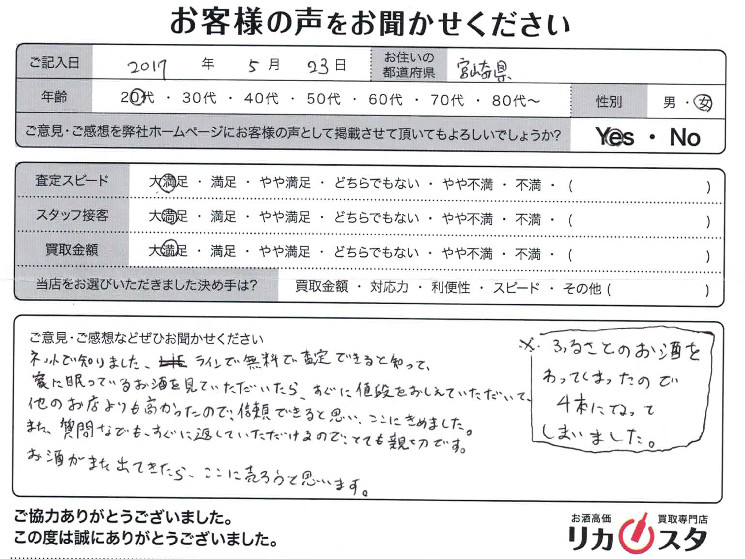 お客様の声をお聞かせください
ご記入日 2017 年 5 月 23 日 お住いの都道府県 宮崎県
年齢 20代 ・ 30代 ・ 40代 ・ 50代 ・ 60代 ・ 70代 ・ 80代～ 性別 男 ・ 女
ご意見・ご感想を弊社ホームページにお客様の声として掲載させて頂いてもよろしいでしょうか? Yes ・ No
査定スピード 大満足 ・ 満足 ・ やや満足 ・ どちらでもない ・ やや不満 ・ 不満 ・ ( )
スタッフ接客 大満足 ・ 満足 ・ やや満足 ・ どちらでもない ・ やや不満 ・ 不満 ・ ( )
買取金額 大満足 ・ 満足 ・ やや満足 ・ どちらでもない ・ やや不満 ・ 不満 ・ ( )
当店をお選びいただきました決め手は? 買取金額 ・ 対応力 ・ 利便性 ・ スピード ・ その他 ( )
ご意見・ご感想などぜひお聞かせください
ネットで知りました、ラインで無料で査定できると知って、
家に眠っているお酒を見ていただいたら、すぐに値段をおしえていただいて、
他のお店よりも高かったので、信頼できると思い、ここにきめました。
また、質問などでも、すぐに返していただけるので、とても親切です。
お酒がまた出てきたら、ここに売ろうと思います。
※ ふるさとのお酒を
わってしまったので
4本になって
しまいました。
ご協力ありがとうございました。
この度は誠にありがとうございました。
お酒高価 買取専門店
リカスタ